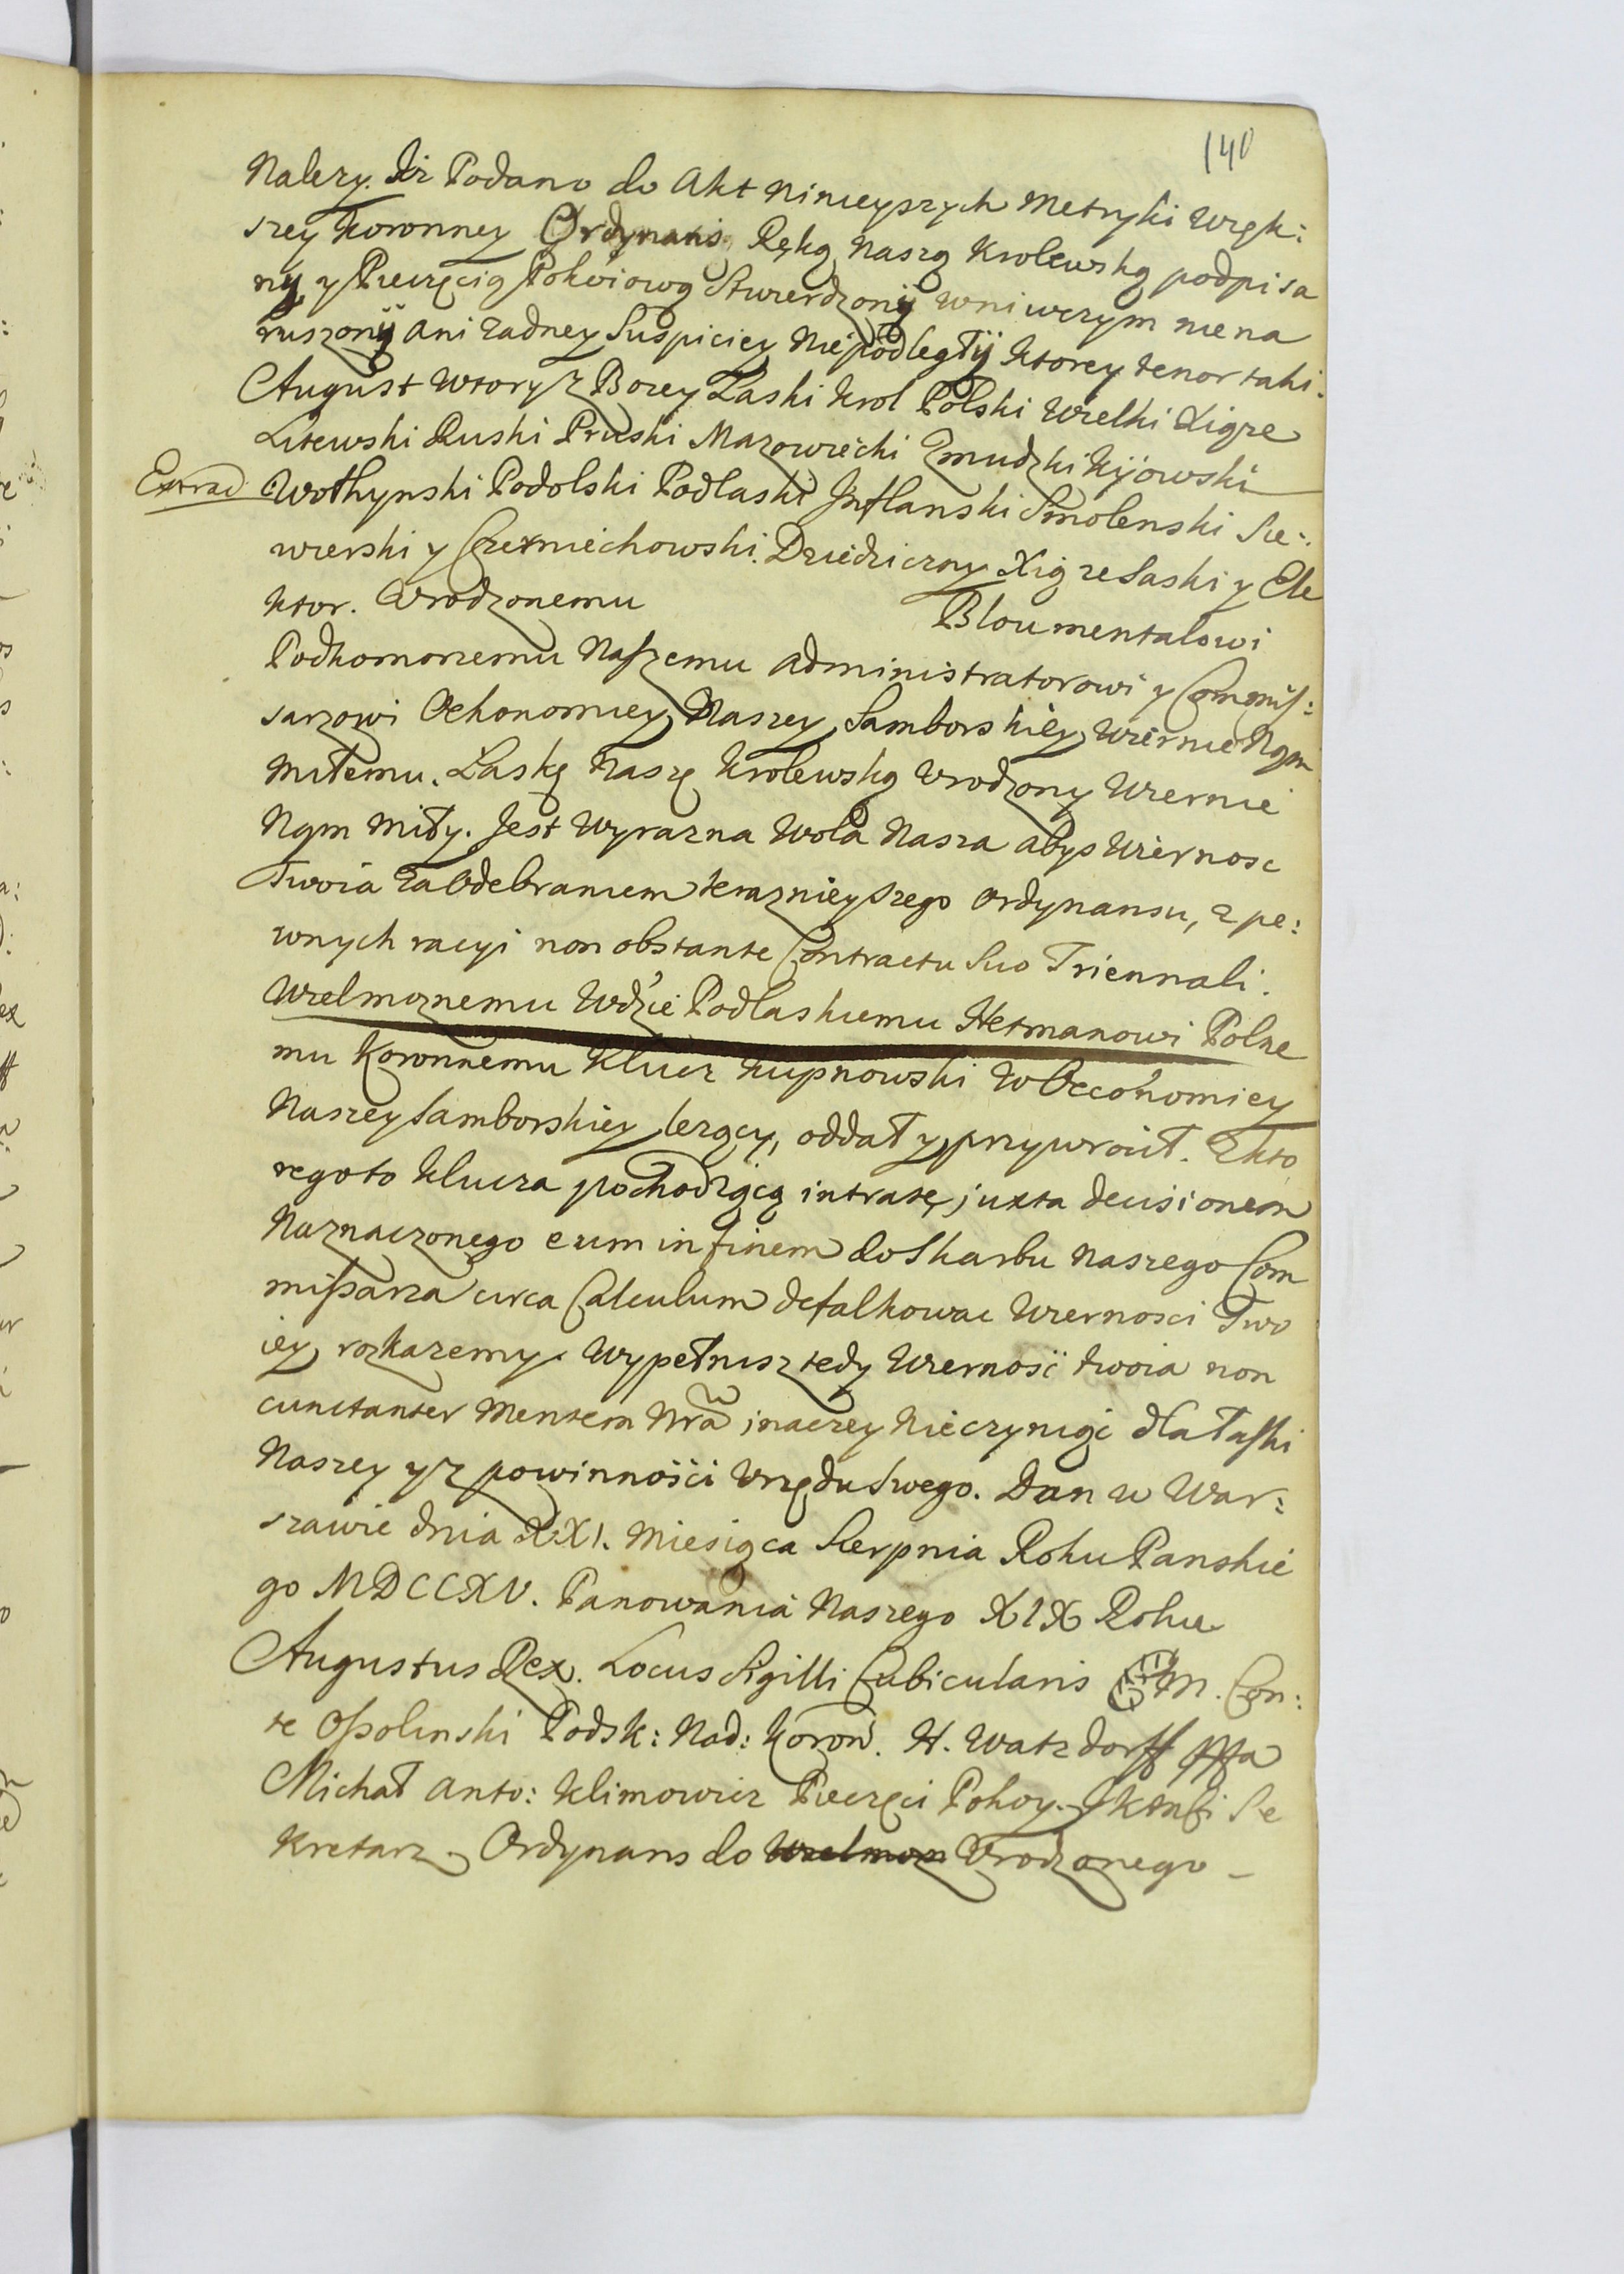 140
Nalezy. Iz Podano do Akt Ninieyszych Metryki Więk:
szey Koronney Ordynans Ręką Naszą Krolewską podpisa
ny y Pieczęcią Pokoiową Stwierdzony wni wczym niena
ruszony ani Żadney Suspiciey Niepodległy Ktorey tenor taki.
August Wtory z Bozey Łaski Krol Polski Wielki Xiąze
Litewski Ruski Pruski Mazowiecki Zmudzki Kijowski
Extrad
Wołhynski Podolski Podlaski Inflanski Smolenski Sie:
wierski y Czerniechowski. Dziedziczny Xiąze Saski y Ele
ktor. Urodzonemu Bloumentalowi
Podkomorzemu Naszemu Administratorowi y Commis:
sarzowi Oekonomiey Naszey Samborskiey Wiernie Nąm
miłemu. Łaskę Naszę Krolewską Urodzony Wiernie
Nąm miły. Jest Wyrazna Wola Nasza abys Wiernosc
Twoia za Odebraniem teraznieyszego Ordynansu, z pe:
wnych racyi non obstante Contractu Suo Triennali.
Wielmoznemu Wdzie Podlaskiemu Hetmanowi Polne
mu Koronnemu Klucz Kupnowski w Oeconomiey
Naszey Samborskiey lezący, oddał y przywroił. Z kto
rego to Klucza pochodzącą intratę, juxta decisionem
Naznaczonego eum in finem do Skarbu Naszego Com
missarza circa Calculum defalkowac Wiernosci Two
iey rozkazemy. Wypełnisz tedy Wiernosć twoia non
cunctanter Mentem Nrã inaczey Nieczyniąc dla łaski
Naszey y z powinności Urzędu Swego. Dan w War:
szawie dnia XXI. Miesiąca Sierpnia Roku Panskie
go MDCCXV. Panowania Naszego XIX Roku
Augustus Rex. Locus Sigilli Cubicularis M. Con:
te Ossolinski Podsk: Nad: Koron. H. Watzdorff
Michał Anto: Klimowicz Pieczęci Pokoy. Se
kretarz. Ordynans do Wielmoz Urodzonego –